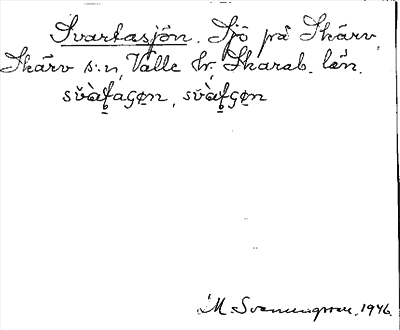 Svartasjön. Sjö på Skärv
Skärv s:n, Valle hr, Skarab. län.
svàtagǝn, svàtgǝn
M Svanungsson. 1946.